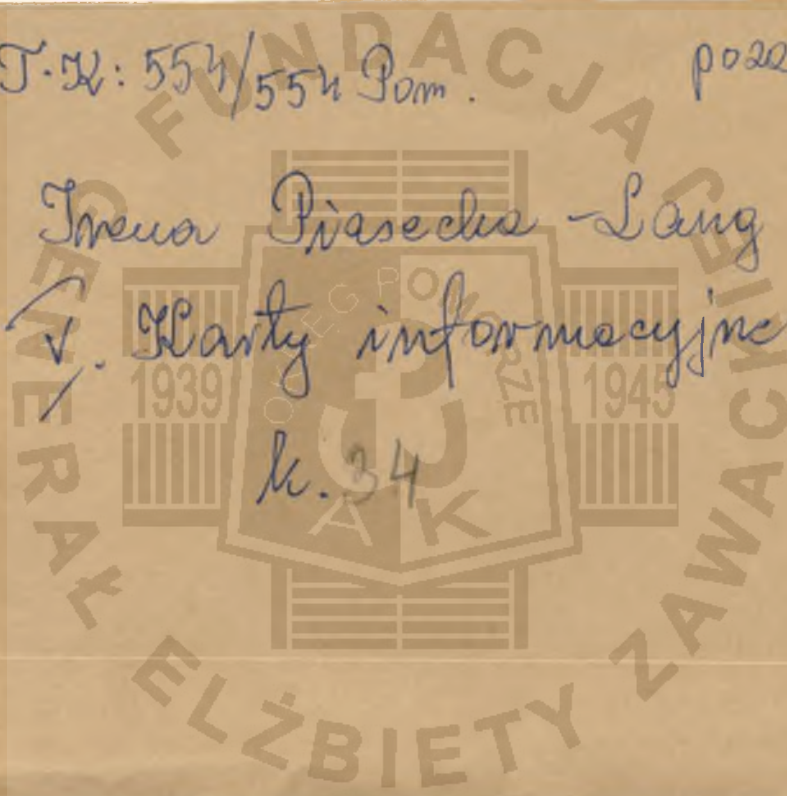 T.K: 554/554 Pom.
Irena Piasecka-Lang
V. Karty informacyjne
k. 34
FUNDACJA GENERAŁ ELŻBIETY ZAWACKIEJ
OKRĘG POMORZE
1939 1945
AK